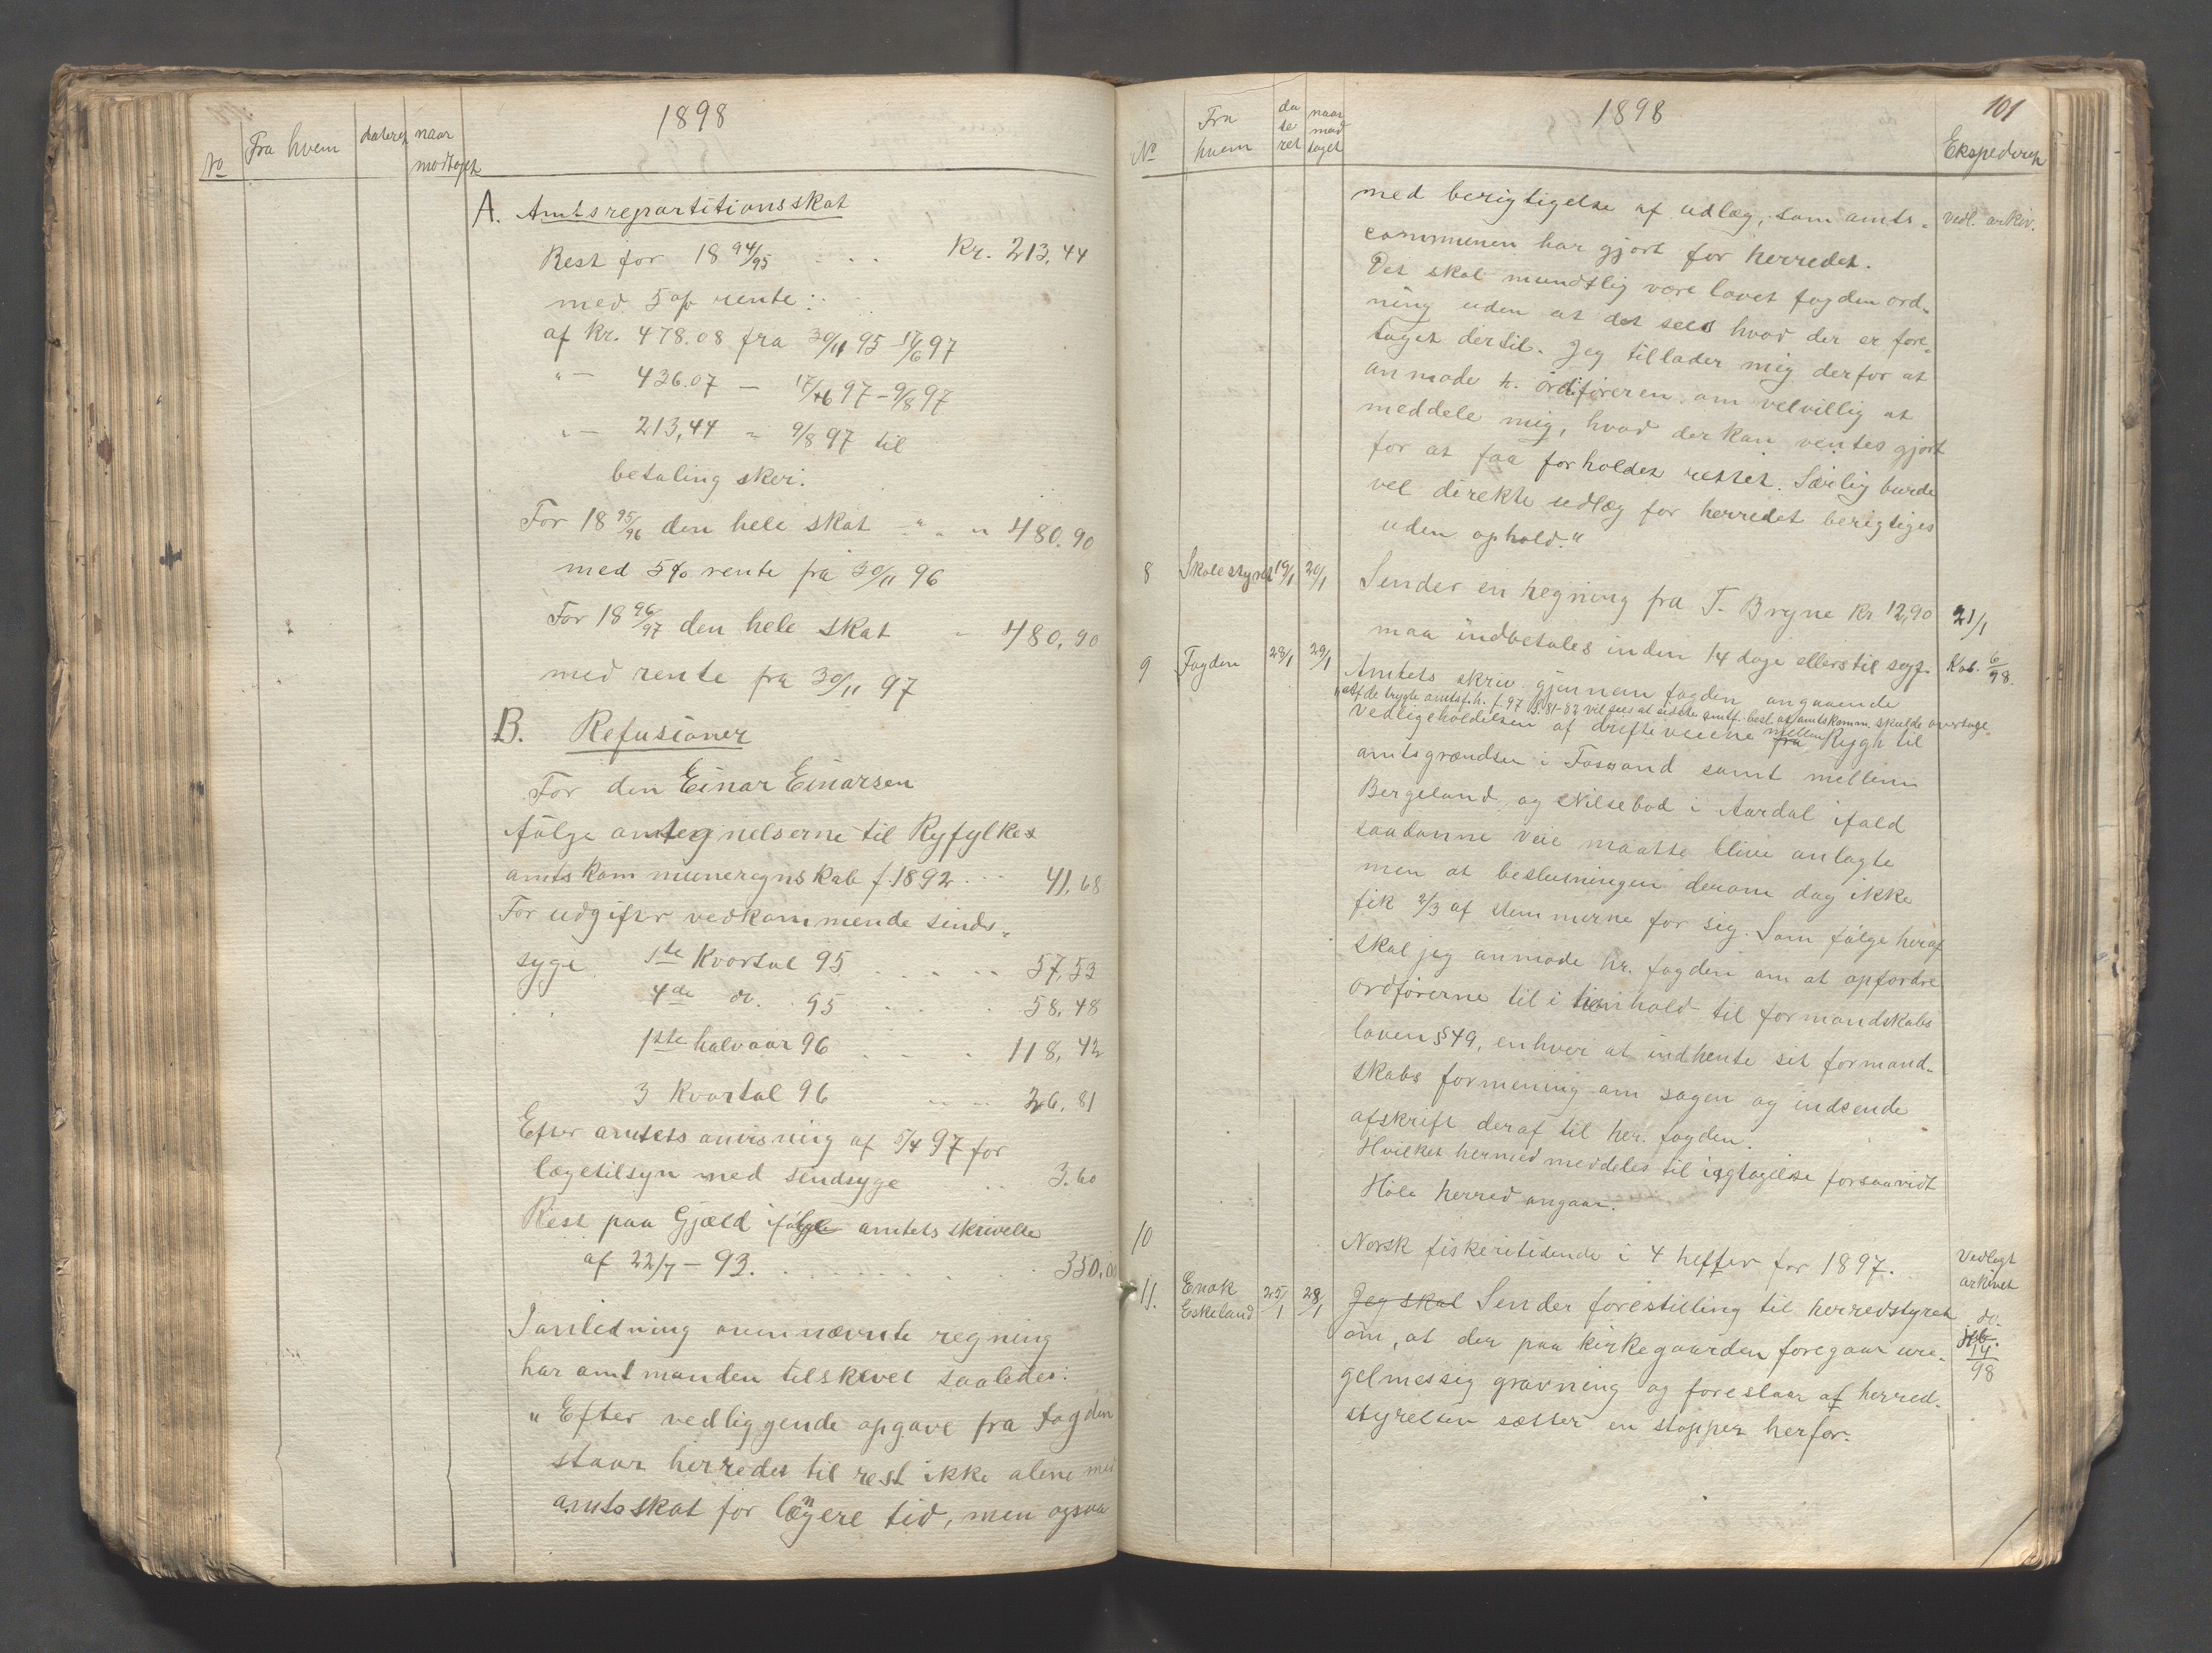 1898
No
Fra hvem
dateret
naar
modtaget
A. Amtsrepartitionsskat
Rest for 18 94/95 . . . Kr. 213,44
med 5 % rente :
af Kr. 478.08 fra 30/11 95 - 17/6 97
"— 436.07 — 17/6 97 - 9/8 97
"— 213,44 " 9/8 97 til
betaling sker.
For 18 95/96 den hele skat — " . " 480.90
med 5% rente fra 30/11 96
For 18 96/97 den hele skat " 480,90
med rente fra 30/11 97
B. Refusioner
For den Einar Einarsen
følge antegnelserne til Ryfylkes
amtskommuneregnskab f. 1892 . . . 41,68
For udgifter vedkommende sinds-
syge 1ste Kvartal 95 . . . . . 57,53
4de do. 95 . . . . 58,48
1ste halvaar 96 . . . . 118,42
3 Kvartal 96 . . . . 26,81
Efter amtets anvisning af 5/4 97 for
lægetilsyn med sindsyge . . 3.60
Rest paa Gjæld ifølge amtets skrivelse
af 22/7 - 93. . . . . . . . 350,00
I anledning ovennævnte regning
har amtmanden tilskrevet saaledes:
"Efter vedliggende opgave fra fogden
staar herredet til rest ikke alene med
amtsskat for længere tid, men ogsaa
101
1898
No
Fra
hvem
da
te
ret
naar
mod
taget
Ekspederet
med berigtigelse af udlæg, som amts- Vedl. arkiv.
communen har gjort for herredet.
Det skal mundtlig være lovet fogden ord-
ning uden at det sees hvad der er fore-
taget dertil. Jeg tillader mig derfor at
anmode h. ordføreren om velvillig at
meddele mig, hvad der kan ventes gjort
for at faa forholdet rettet. Særlig burde
vel direkte udlæg for herredet berigtiges
uden ophold."
8 Skolestyret 19/1 20/1 Sender en regning fra T. Bryne Kr 12,90 21/1
maa indbetales inden 14 dage ellers til sogt.
9 Fogden 28/1 29/1 Amtets skriv gjennem fogden angaaende Kob. 6/98.
"af de trygte amtsf.h. f. 97 S. 81-82 vil sees at sidste amtf. best. at amtskomm. skulde overtage
vedligeholdelsen af drifteveiene fra mellem Rygh til
amtsgrændsen i Fossand samt mellem
Bergeland og Nilsebod i Aardal ifald
saadanne veie maatte blive anlagte
men at beslutningen derom dog ikke
fik 2/3 af stemmerne for sig. Som følge heraf
skal jeg anmode hr. fogden om at opfordre
ordførerne til i henhold til formandskabs
loven § 49, enhver at indhente sit formand-
skabs formening om sagen og indsende
afskrift deraf til her. fogden.
Hvilket hermed meddeles til iagtagelse forsaavidt
Høle herred angaar.
10 Norsk fiskeritidende i 4 hefter for 1897. Vedlagt
arkivet
11. Enok
Eskeland 25/1 28/1 Jeg skal Sender forestilling til herredstyret do.
om, at der paa kirkegaarden foregaar ure- 14/98
gelmessig gravning og foreslaar at herred-
styrelsen sætter en stopper herfor.